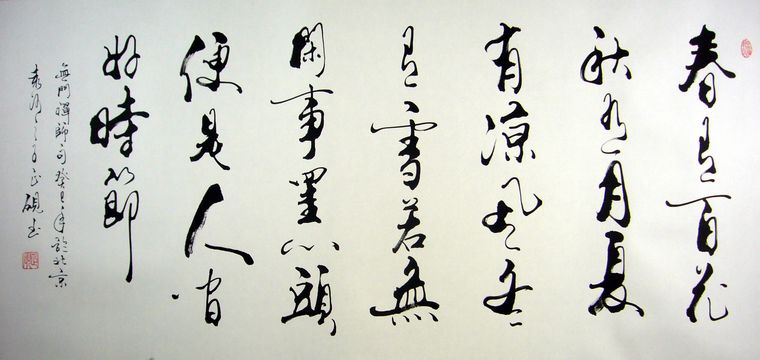 春有百花
秋有月夏
有涼風冬
有雪若無
閑事罣心頭
便是人間
好時節
無門禪師句癸巳年於北京